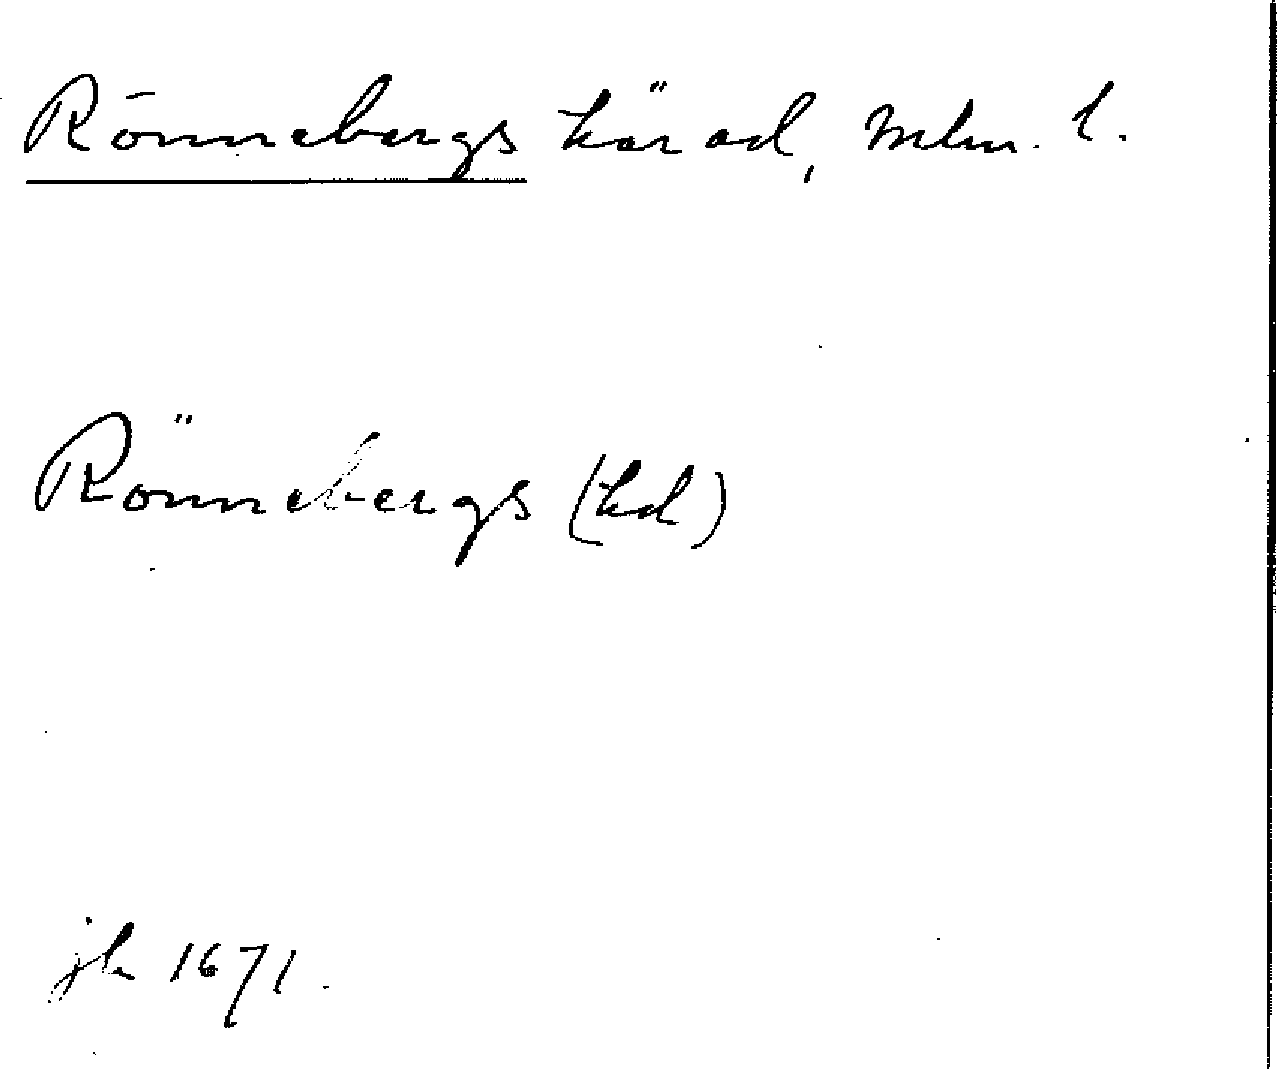 Rönnebergs härad, Mlm. l.
Rönnebergs (hd)
jb 1671.